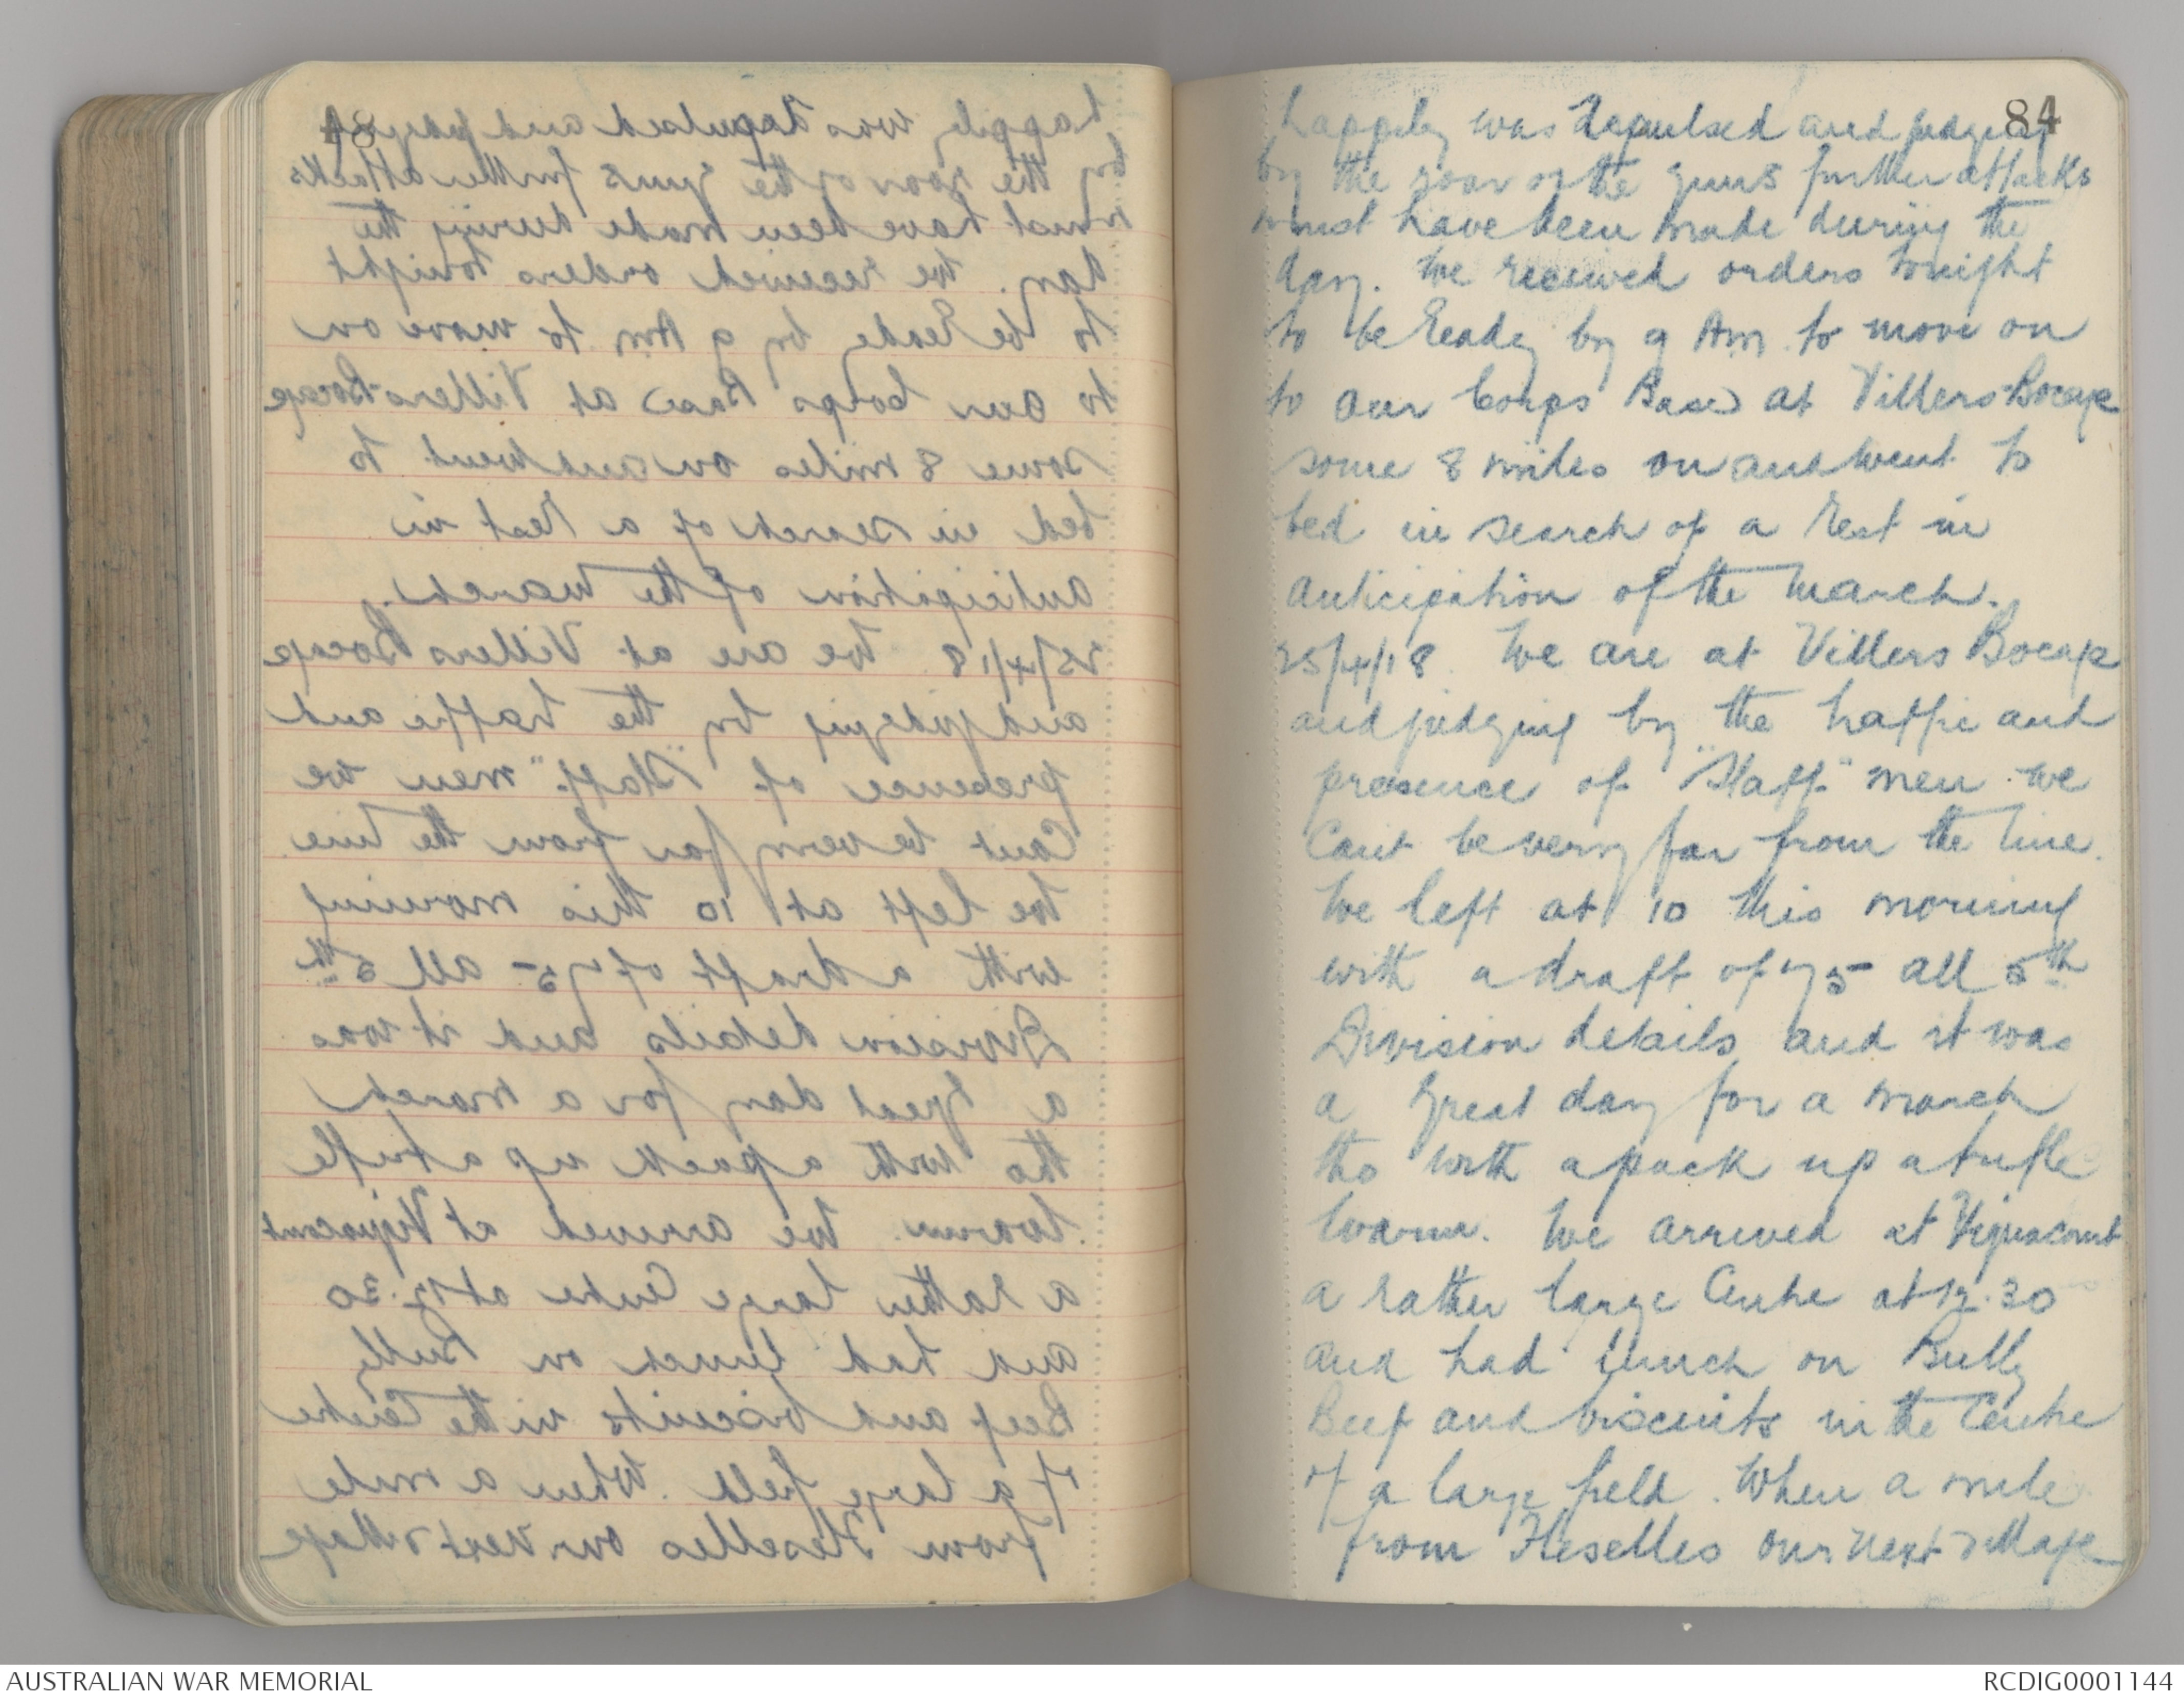 84
happily was Repulsed and judging
by the roar of the guns further attacks
must have been made during the
day. We received orders tonight
to be Ready by 9 Am to move on
to our Corps Base at Villers-Bocage
some 8 miles on and went to
bed in search of a Rest in
anticipation of the march.
25/4/18 We are at Villers Bocage
and judging by the traffic and
presence of "Staff" men we
Cant be very far from the line.
We left at 10 this morning
with a draft of 75 all 5th
Division details and it was
a great day for a march
tho with a pack up a trifle
warm. We arrived at Vignacourt
a rather large Centre at 12.30
and had lunch on Bully
Beef and biscuits in the Centre
of a large field. When a mile
from Fleselles our next village
AUSTRALIAN WAR MEMORIAL
RCDIG0001144